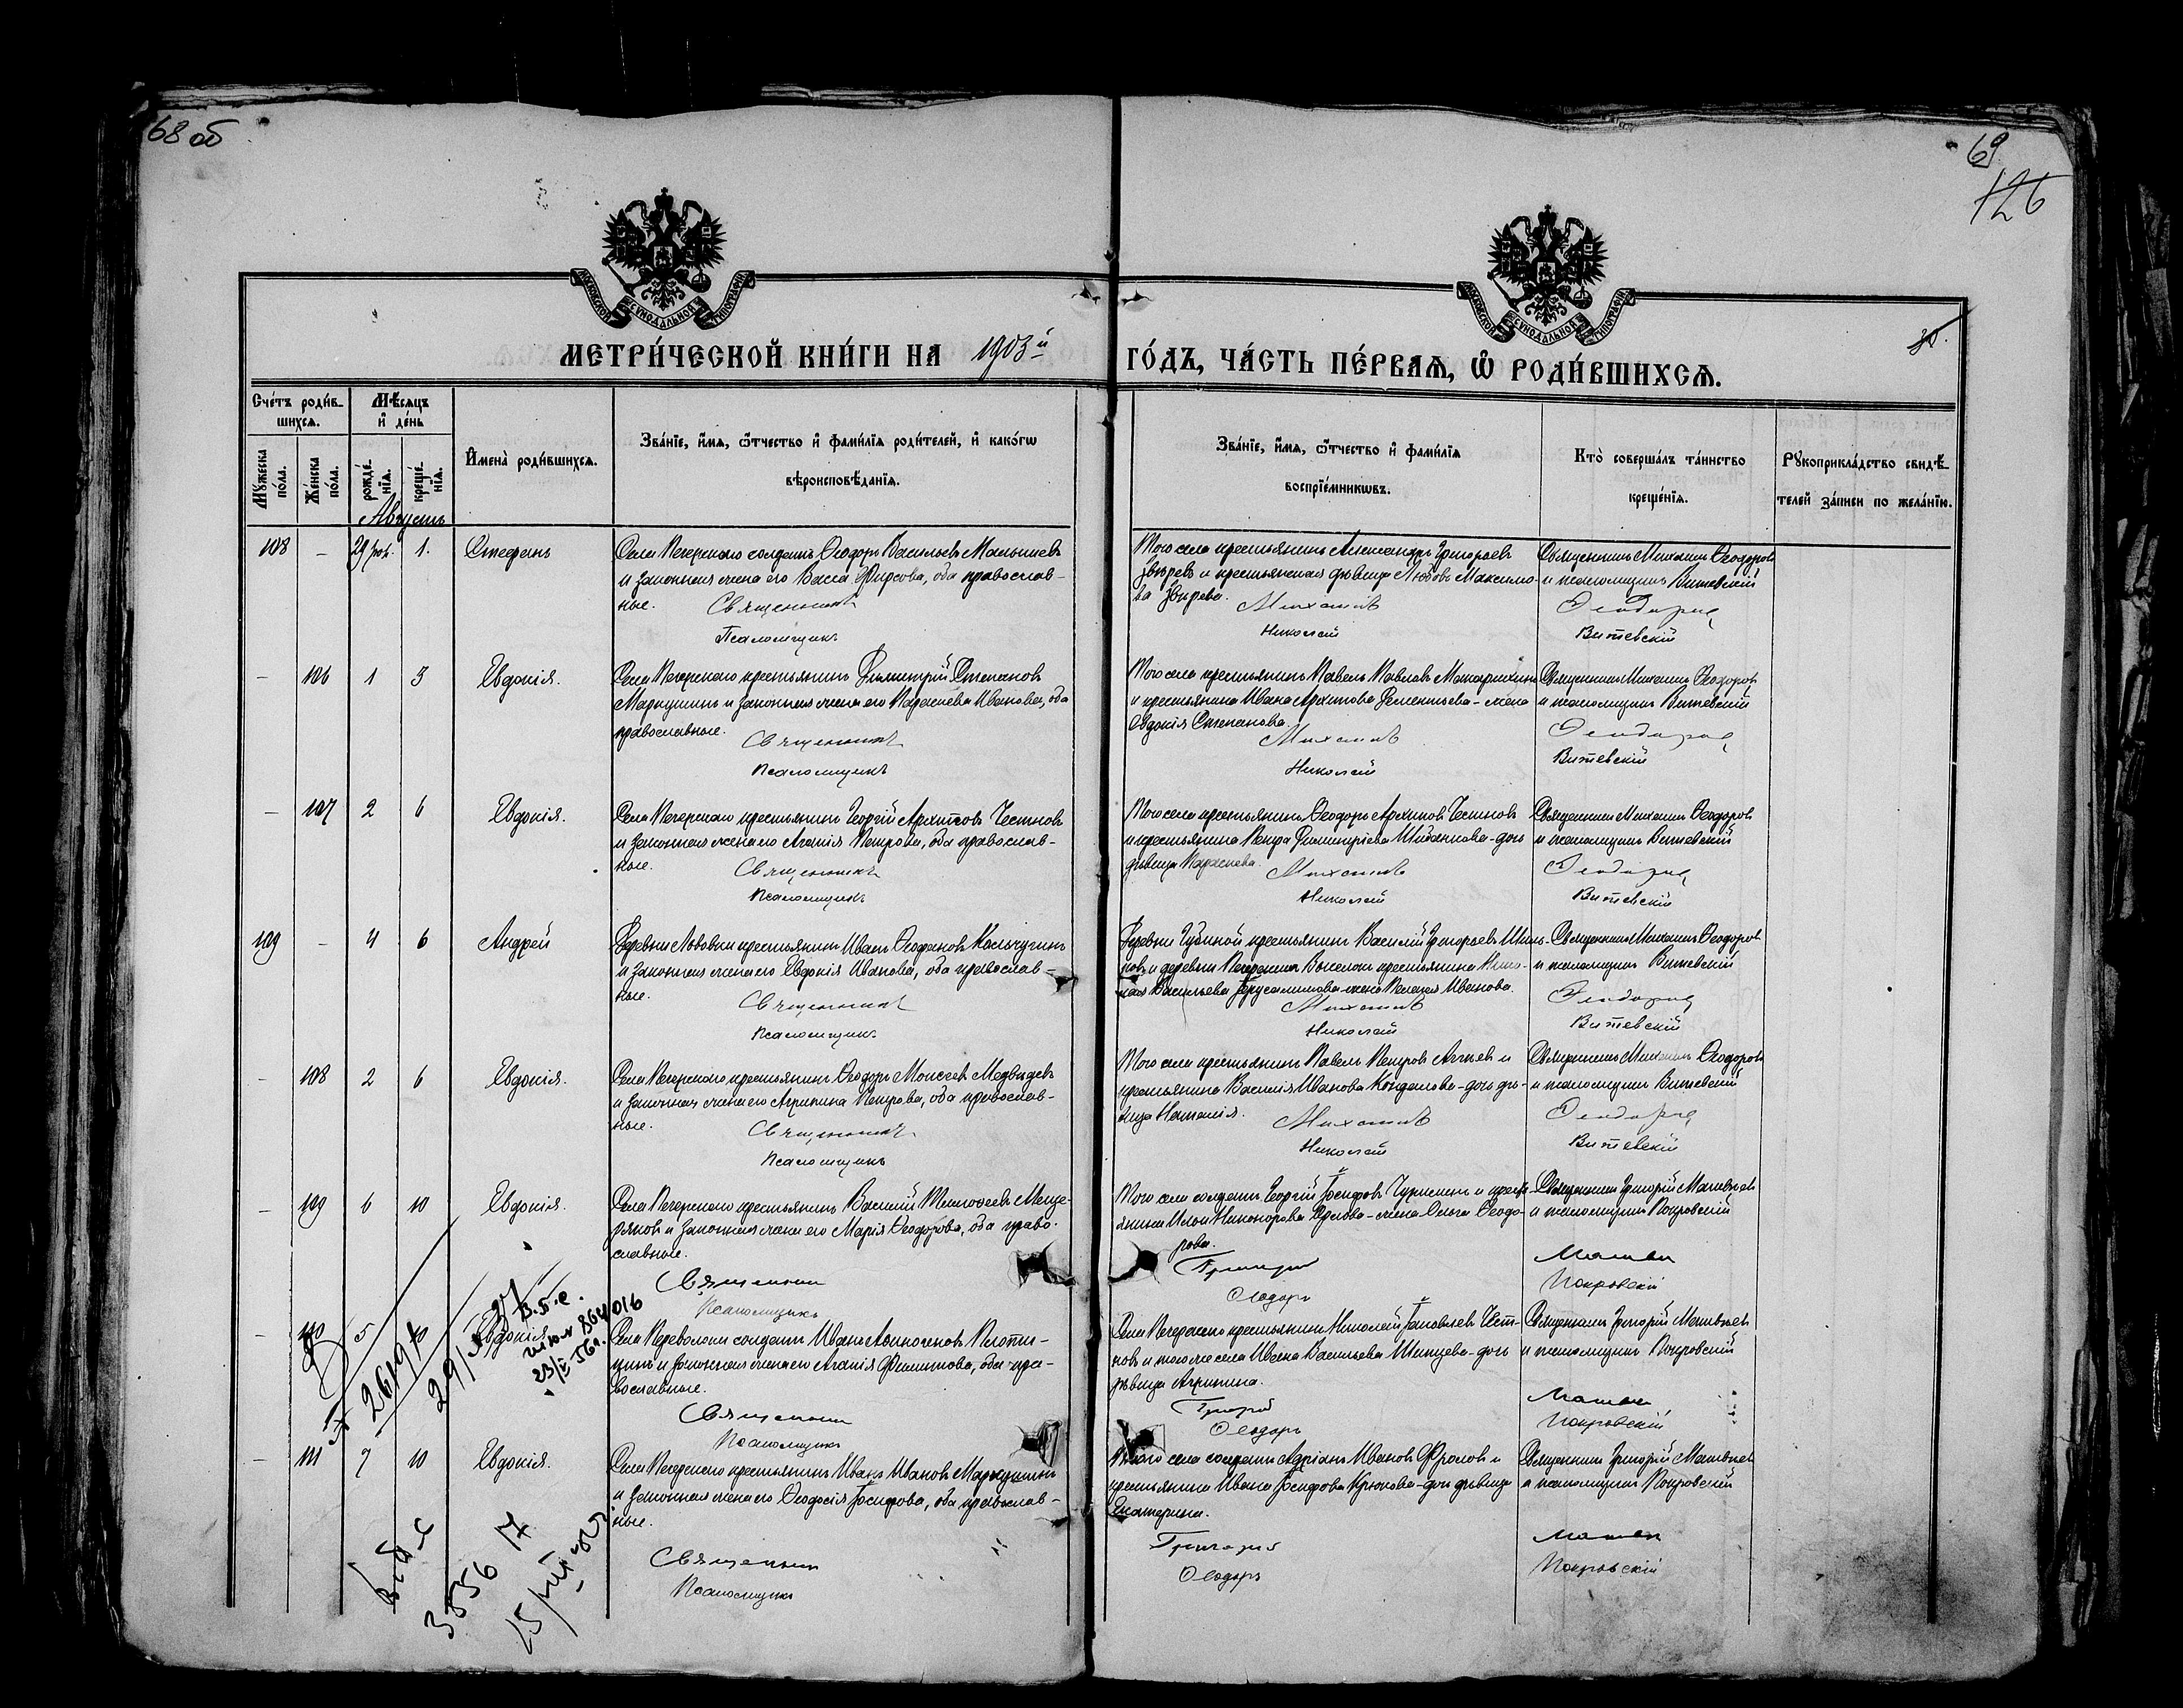 68 об
69
126
МОСКОВСКОЙ СУНОДАЛЬНОЙ ТИПОГРАФІИ
МОСКОВСКОЙ СУНОДАЛЬНОЙ ТИПОГРАФІИ
МЕТРИ́ЧЕСКОЙ КНИ́ГИ НА 1903й
ГО́ДЪ, ЧА́СТЬ ПЕ́РВАѦ, Ѿ РОДИ́ВШИХСѦ.
Сче́тъ роди́в-
шихсѧ.
Мѣ́сѧцъ
и҆ де́нь
Мꙋ́жеска
по́ла.
Же́нска
по́ла.
рожде́-
нїѧ.
креще́-
нїѧ.
И҆мена̀ роди́вшихсѧ.
Зва́нїе, и҆́мѧ, ѻ҆́тчество и҆ фами́лїѧ роди́телей, и҆ како́гѡ
вѣроисповѣ́данїѧ.
Зва́нїе, и҆́мѧ, ѻ҆́тчество и҆ фами́лїѧ
воспрїе́мникѡвъ.
Кто̀ соверша́лъ та́инство
креще́нїѧ.
Рꙋкоприкла́дство свидѣ́-
телей за́писи по жела́нїю.
Августъ
108 – 29 1. Стефанъ
Села Печерскаго солдатъ Ѳеодоръ Васильевъ Малышевъ
и законная жена его Васса Фирсова, оба православ-
ные.
Священникъ
Псаломщикъ
Того села крестьянинъ Александръ Григорьевъ
Звѣревъ и крестьянская дѣвица Любовь Максимо-
ва Звѣрева.
Михаилъ
Николай
Священникъ Михаилъ Ѳеодоровъ
и псаломщикъ Витевскій
Ѳеодоровъ
Витевскій
– 106 1 3 Евдокія.
Села Печерскаго крестьянинъ Димитрій Степановъ
Маркушинъ и законная жена его Параскева Иванова, оба
православные.
Священникъ
Псаломщикъ
Того села крестьянинъ Павелъ Павловъ
и крестьянина Ивана Архипова Дементьева – жена
Евдокія Степанова.
Михаилъ
Николай
Священникъ Михаилъ Ѳеодоровъ
и псаломщикъ Витевскій
Ѳеодоровъ
Витевскій
– 107 2 6 Евдокія.
Села Печерскаго крестьянинъ Георгій Архиповъ Честновъ
и законная жена его Агапія Петрова, оба православ-
ные.
Священникъ
Псаломщикъ
Того села крестьянинъ Ѳеодоръ Архиповъ Честновъ
и крестьянина Петра Димитріева – дочь
дѣвица Параскева.
Михаилъ
Николай
Священникъ Михаилъ Ѳеодоровъ
и псаломщикъ Витевскій
Ѳеодоровъ
Витевскій
109 – 4 6 Андрей
Деревни Львовки крестьянинъ Иванъ Ѳеофановъ Кольчугинъ
и законная жена его Евдокія Иванова, оба православ-
ные.
Священникъ
Псаломщикъ
Деревни Губиной крестьянинъ Василій Григорьевъ
и деревни Печерскихъ Выселокъ крестьянина
Васильева Іерусалимова – жена Пелагія Иванова.
Михаилъ
Николай
Священникъ Михаилъ Ѳеодоровъ
и псаломщикъ Витевскій
Ѳеодоровъ
Витевскій
– 108 2 6 Евдокія.
Села Печерскаго крестьянинъ Ѳеодоръ Моисеевъ Медвѣдевъ
и законная жена его Агрипина Петрова, оба православ-
ные.
Священникъ
Псаломщикъ
Того села крестьянинъ Павелъ Петровъ и
крестьянина Василія Иванова Кондалова – дочь дѣ-
вица Наталія.
Михаилъ
Николай
Священникъ Михаилъ Ѳеодоровъ
и псаломщикъ Витевскій
Ѳеодоровъ
Витевскій
– 109 6 10 Евдокія.
Села Печерскаго крестьянинъ Василій Тимоѳеевъ Меще-
ряковъ и законная жена его Марія Ѳеодорова, оба право-
славные.
Священникъ
Псаломщикъ
Того села солдатъ Георгій Іосифовъ и кресть-
янина Ильи Никонорова Орлова – жена Ольга Ѳеодо-
рова.
Григорій
Ѳеодоръ
Священникъ Григорій Матвѣевъ
и псаломщикъ Покровскій
Матвѣевъ
Покровскій
– 110 5 10 Евдокія.
Села Переволоки солдатъ Иванъ Плотни-
цинъ и законная жена его Агапія Филиппова, оба пра-
вославные.
Священникъ
Псаломщикъ
Села Печерскаго крестьянинъ Николай Іаковлевъ Чест-
новъ и того же села Ивана Васильева Шипцева – дочь
дѣвица Агрипина.
Григорій
Ѳеодоръ
Священникъ Григорій Матвѣевъ
и псаломщикъ Покровскій
Матвѣевъ
Покровскій
– 111 7 10 Евдокія.
Села Печерскаго крестьянинъ Иванъ Ивановъ Маркушинъ
и законная жена его Ѳеодосія Іосифова, оба православ-
ные.
Священникъ
Псаломщикъ
Того села солдатъ Адріанъ Ивановъ Фроловъ и
крестьянина Ивана Іосифова Крюкова – дочь дѣвица
Екатерина.
Григорій
Ѳеодоръ
Священникъ Григорій Матвѣевъ
и псаломщикъ Покровскій
Матвѣевъ
Покровскій